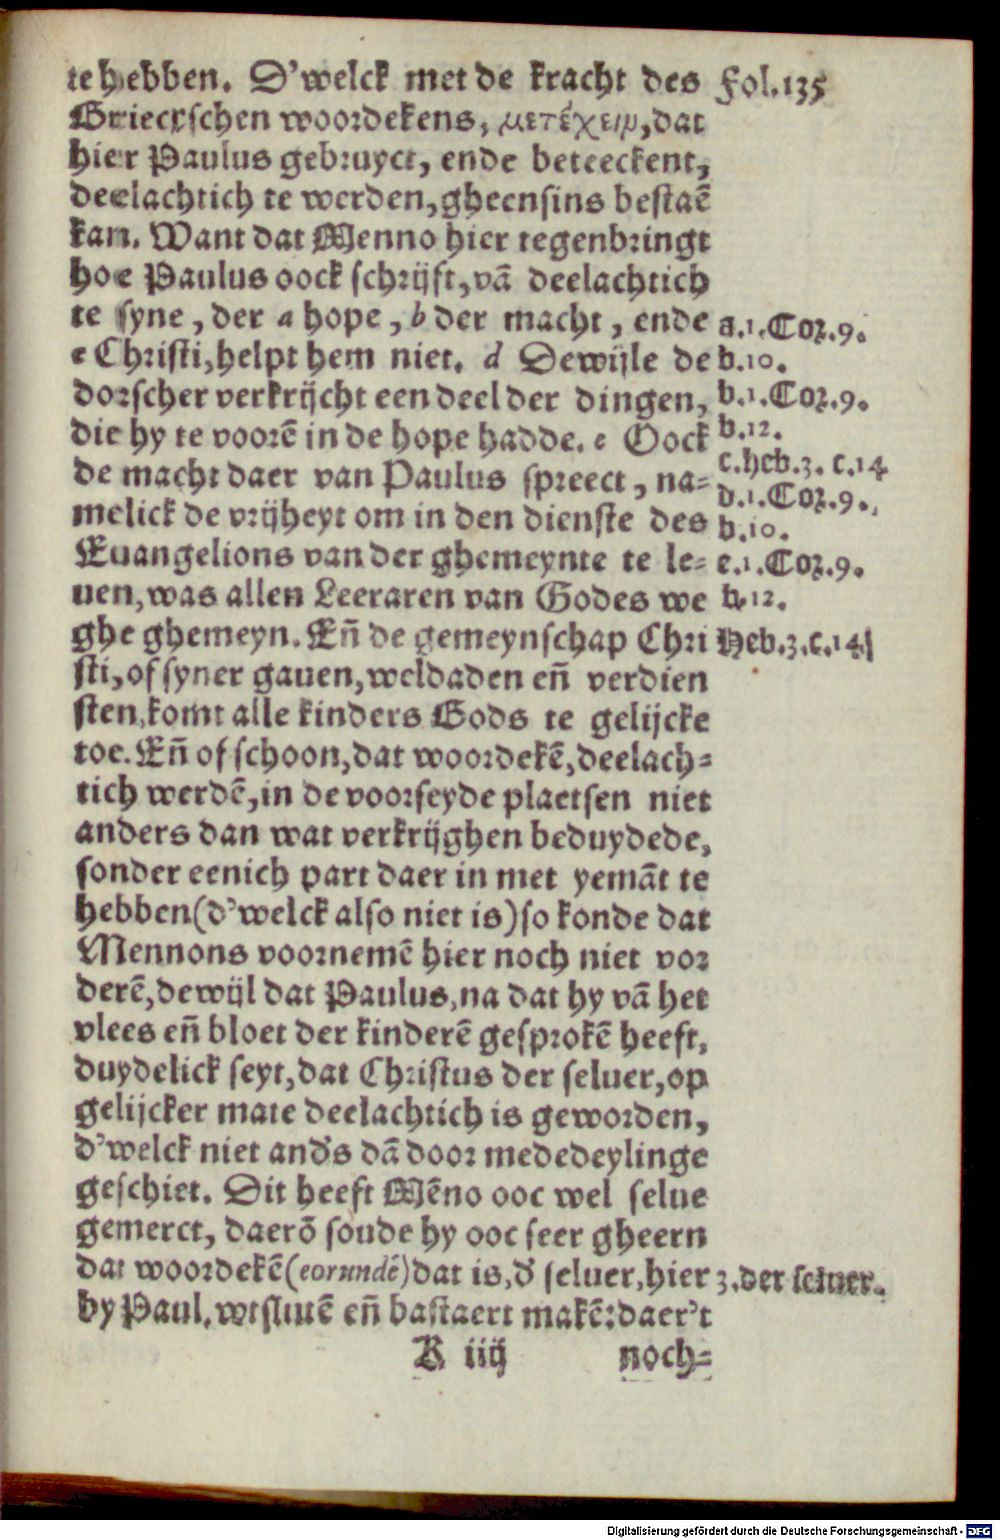 te hebben. D'welck met de kracht des
Fol.135
Griecxschen woordekens, μετέχειν, dat
hier Paulus gebruyct, ende beteeckent,
deelachtich te werden, gheensins bestaē
kan. Want dat Menno hier tegenbringt
hoe Paulus oock schrijft, vā deelachtich
te syne, der a hope, b der macht, ende
a.1.Cor.9.
c Christi, helpt hem niet. d Dewijle de
b.10.
dorscher verkrijcht een deel der dingen,
b.1.Cor.9.
die hy te voorē in de hope hadde. e Oock
b.12.
de macht daer van Paulus spreect, na-
c.heb.3. c.14
melick de vrijheyt om in den dienste des
d.1.Cor.9.
b.10.
Euangelions van der ghemeynte te le-
e.1.Cor.9.
uen, was allen Leeraren van Godes we
b.12.
ghe ghemeyn. Eñ de gemeynschap Chri
Heb.3.c.14
sti, of syner gauen, weldaden eñ verdien
sten, komt alle kinders Gods te gelijcke
toe. Eñ of schoon, dat woordekē, deelach-
tich werdē, in de voorseyde plaetsen niet
anders dan wat verkrijghen beduydede,
sonder eenich part daer in met yemāt te
hebben (d'welck also niet is) so konde dat
Mennons voornemē hier noch niet vor
derē, dewijl dat Paulus, na dat hy vā het
vlees eñ bloet der kinderē gesprokē heeft,
duydelick seyt, dat Christus der seluer, op
gelijcker mate deelachtich is geworden,
d'welck niet and's dā door mededeylinge
geschiet. Dit heeft Mēno ooc wel selue
gemerct, daerō soude hy ooc seer gheern
dat woordekē (eorundē) dat is, d' seluer, hier
3.der seluer.
by Paul. wtslutē eñ bastaert makē: daer't
R iiij
noch-
Digitalisierung gefördert durch die Deutsche Forschungsgemeinschaft - DFG